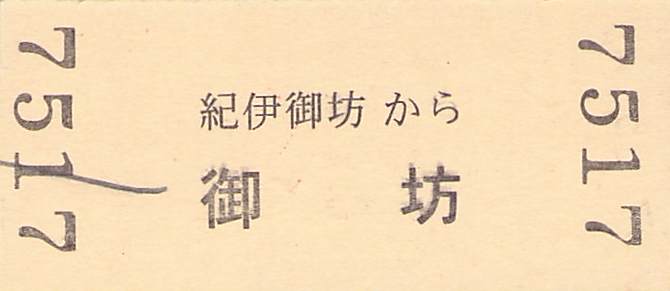 7517
紀伊御坊 から
御 坊
7517